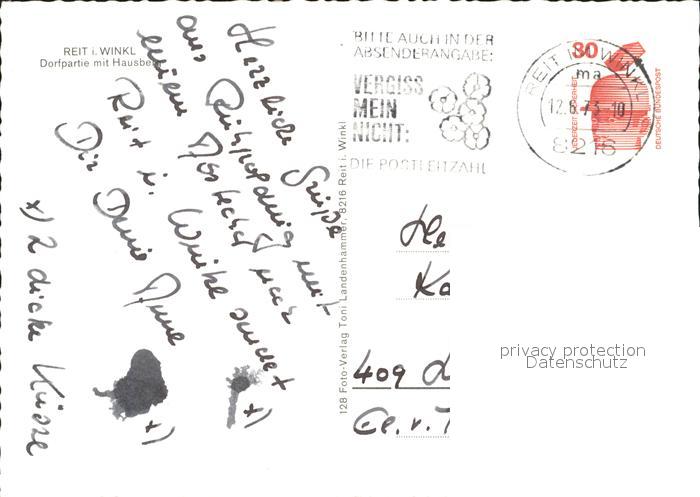 REIT i. WINKL
Dorfpartie mit Hausberg
Herzliche Grüße
aus Ruhpolding mit
einem Abstecher nach
Reit i. Winkl sendet
Dir Deine Anne
x)
x)
x) 2 dicke Küsse
128 Foto-Verlag Toni Landenhammer, 8216 Reit i. Winkl
BITTE AUCH IN DER
ABSENDERANGABE:
VERGISS
MEIN
NICHT:
DIE POSTLEITZAHL
REIT i. WINKL
ma
12.6.73-10
8216
30
JEDERZEIT SICHERHEIT
DEUTSCHE BUNDESPOST
He
Ka
409
privacy protection
Datenschutz